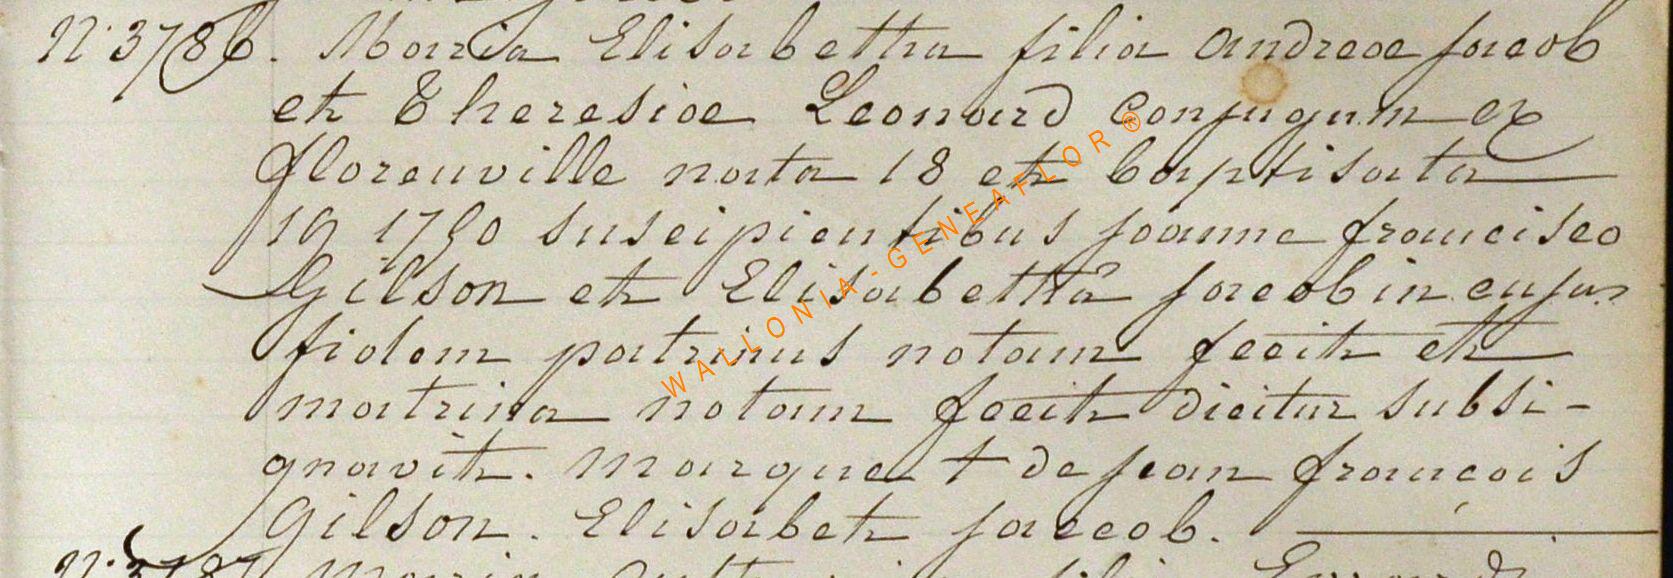 N° 3786. Maria Elisabetha filia andreae jacob
et Theresiae Leonard Conjugum ex
florenville nata 18 et baptisata
19 1790 suscipientibus joanne francisco
Gilson et Elisabetha jacob in cujus
fidem patrinus notam fecit et
matrina notam fecit dicitur subsi-
gnavit. Marque + de jean francois
Gilson. Elisabeth jaccob.
N° 3787 Maria
WALLONIA-GENEAFLOR®